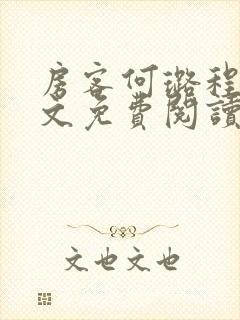 房客何璐程
文免費閱讀
文也文也